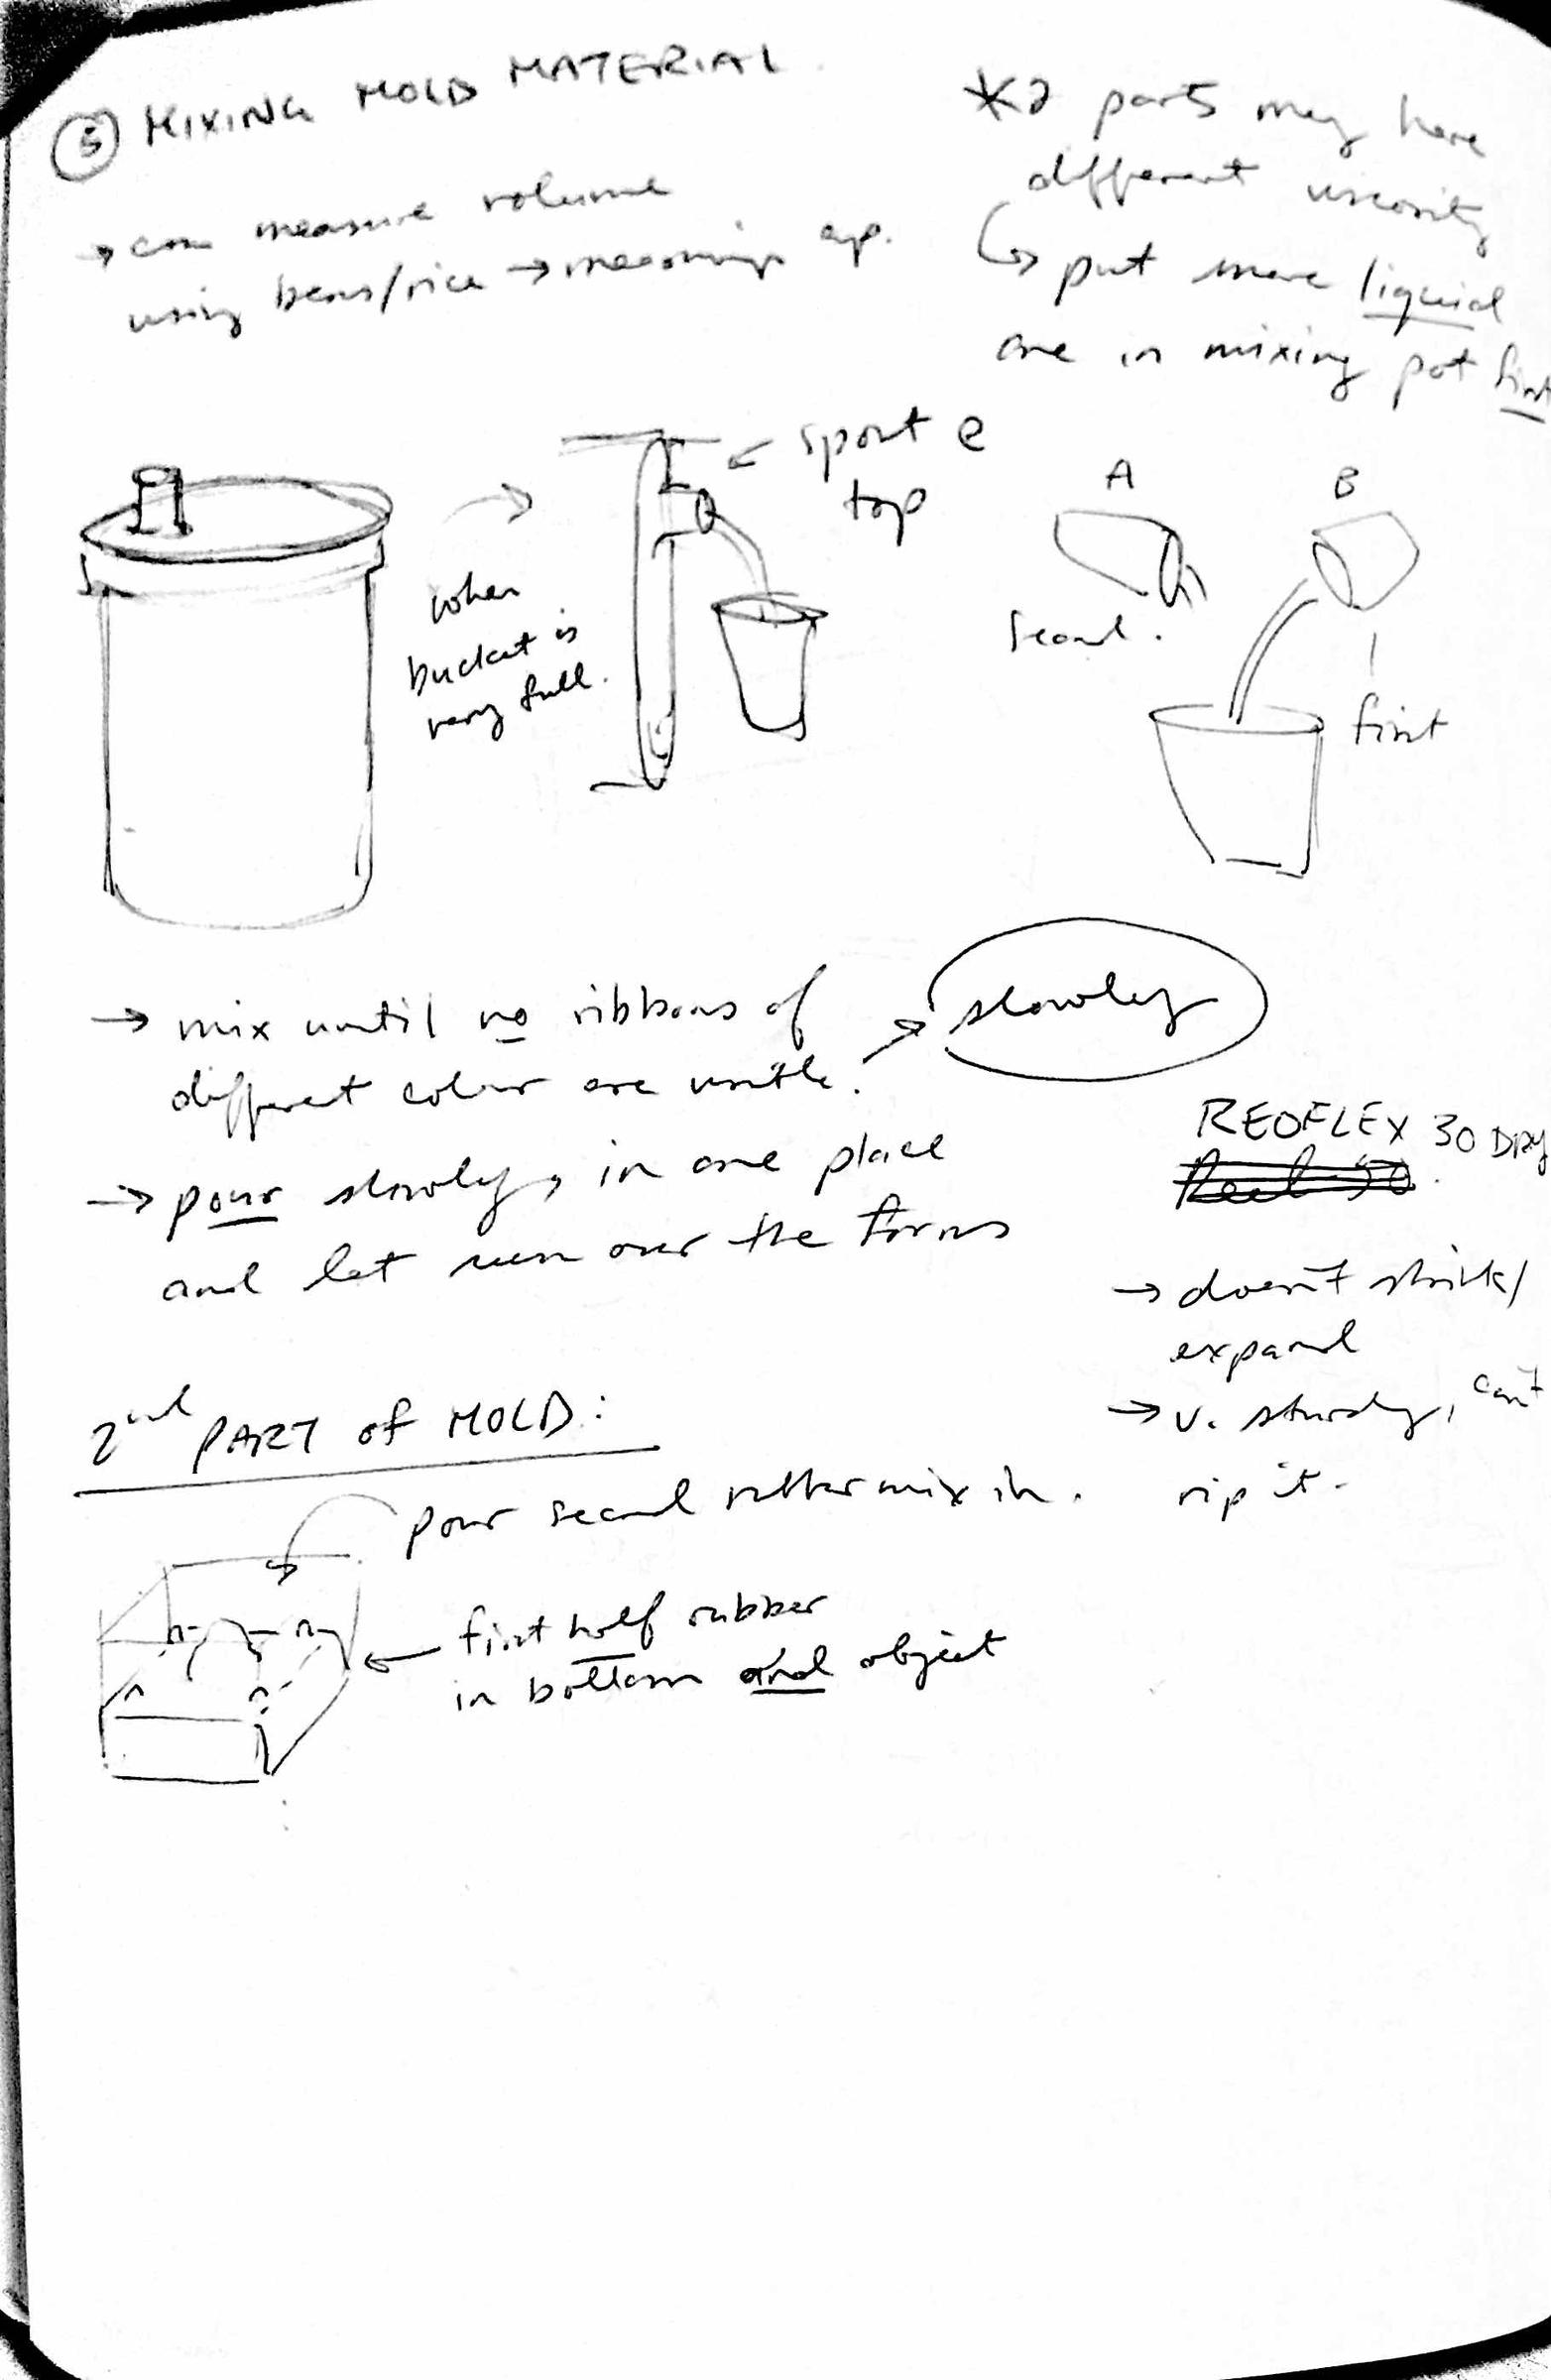 ⑤ MIXING MOLD MATERIAL
→ can measure volume
using beans/rice → measuring cup.
* 2 parts may have
different viscosity
↳ put more liquid
one in mixing pot first
spout @
top
when
bucket is
very full.
A
B
second.
first
→ mix until no ribbons of
different colour are visible.
→ slowly
→ pour slowly, in one place
and let run over the forms
REOFLEX 30 DRY
→ doesn't shrink/
expand
→ v. sturdy, can't
rip it.
2nd PART of MOLD:
pour second rubber mix in.
← first half rubber
in bottom and object